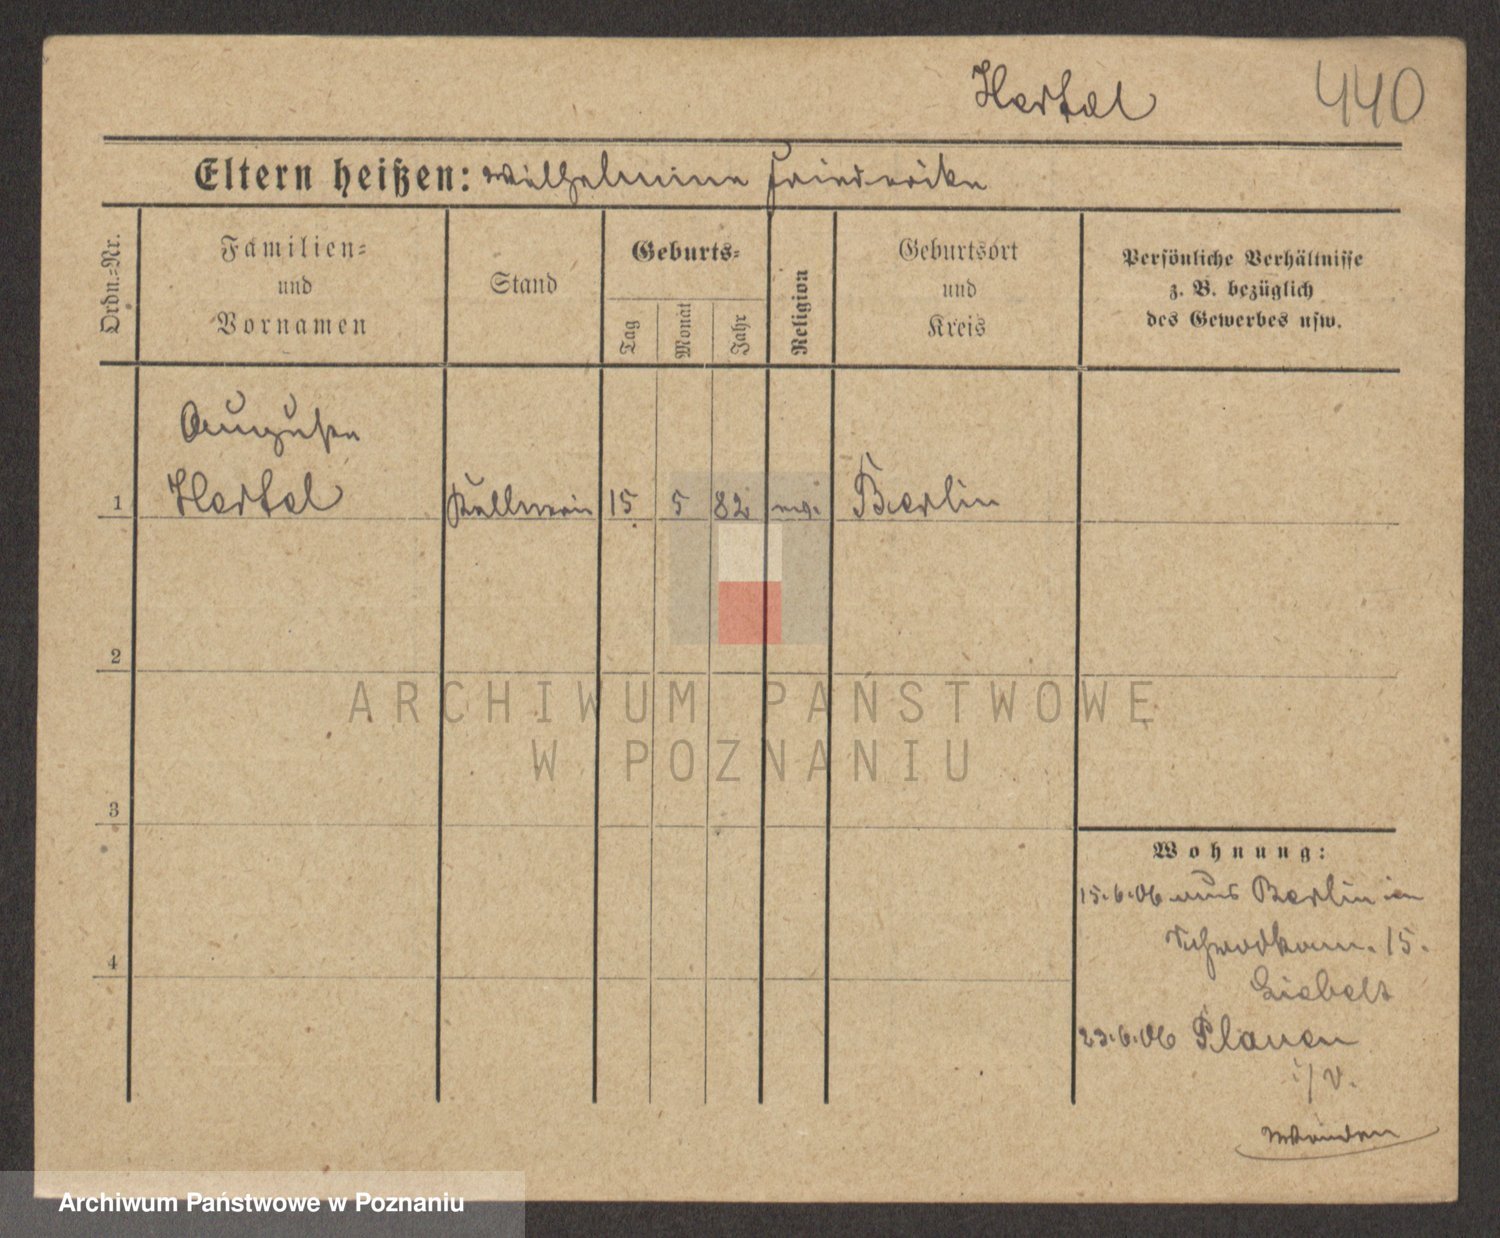 Hertel 440
Eltern heißen: Wilhelmine Friederike
Ordn.-Nr.
Familien-
und
Vornamen
Stand
Geburts-
Tag
Monat
Jahr
Religion
Geburtsort
und
Kreis
Persönliche Verhältnisse
z. B. bezüglich
des Gewerbes usw.
Auguste
1 Hertel Kellnerin 15 5 82 ev. Berlin
2
3
4
Wohnung:
15.6.06 aus Berlin in
15.
Siebelt
23.6.06 Plauen
i/V.
ARCHIWUM PAŃSTWOWE
W POZNANIU
Archiwum Państwowe w Poznaniu